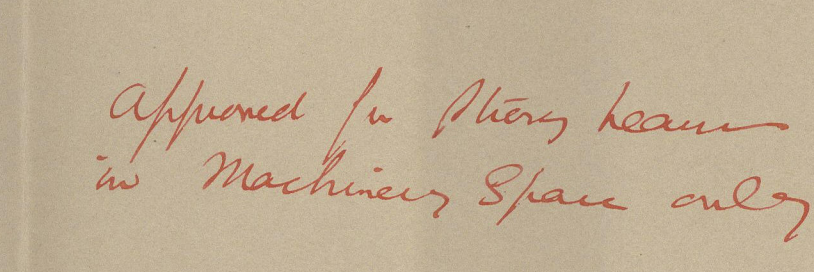 Approved for strong beams
in Machinery Space only